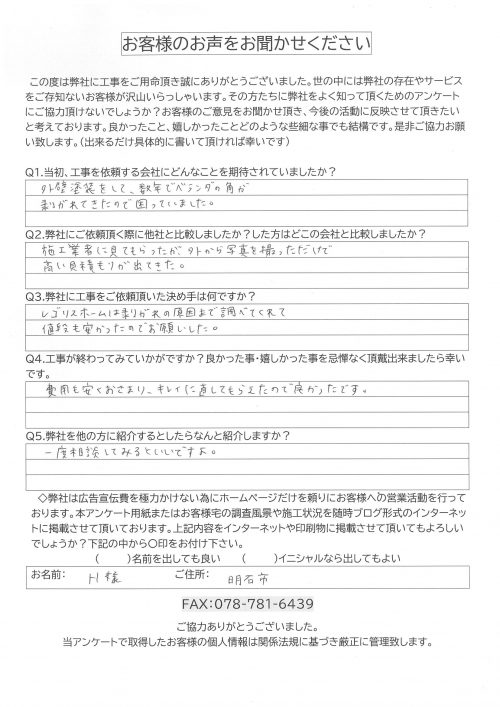 お客様のお声をお聞かせください
この度は弊社に工事をご用命頂き誠にありがとうございました。世の中には弊社の存在やサービス
をご存知ないお客様が沢山いらっしゃいます。その方たちに弊社をよく知って頂くためのアンケート
にご協力頂けないでしょうか？お客様のご意見をお聞かせ頂き、今後の活動に反映させて頂きたい
と考えております。良かったこと、嬉しかったことどのような些細な事でも結構です。是非ご協力お願
い致します。（出来るだけ具体的に書いて頂ければ幸いです）
Q1.当初、工事を依頼する会社にどんなことを期待されていましたか？
外壁塗装をして、数年でベランダの角が
剥がれてきたので困っていました。
Q2.弊社にご依頼頂く際に他社と比較しましたか？した方はどこの会社と比較しましたか？
施工業者に見てもらったが、外から写真を撮っただけで
高い見積もりが出てきた。
Q3.弊社に工事をご依頼頂いた決め手は何ですか？
レゴリスホームは剥がれの原因まで調べてくれて
値段も安かったのでお願いしました。
Q4.工事が終わってみていかがですか？良かった事・嬉しかった事を忌憚なく頂戴出来ましたら幸い
です。
費用も安くおさまり、キレイに直してもらえたので良かったです。
Q5.弊社を他の方に紹介するとしたらなんと紹介しますか？
一度相談してみるといいですよ。
◇弊社は広告宣伝費を極力かけない為にホームページだけを頼りにお客様への営業活動を行って
おります。本アンケート用紙またはお客様宅の調査風景や施工状況を随時ブログ形式のインターネッ
トに掲載させて頂いております。上記内容をインターネットや印刷物に掲載させて頂いてもよろしい
でしょうか？下記の中から〇印をお付け下さい。
（　　）名前を出しても良い　（　　）イニシャルなら出してもよい
お名前：　H様　ご住所：　明石市
FAX：078-781-6439
ご協力ありがとうございました。
当アンケートで取得したお客様の個人情報は関係法規に基づき厳正に管理致します。